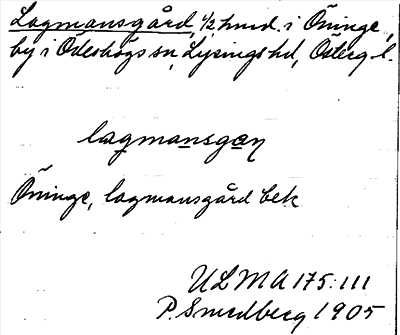 Lagmansgård, 1/2 hmd. i Öninge,
by i Ödeshögs sn, Lysings hd, Österg l.
lagmansgaɳ
Öninge, lagmansgård bek
ULMA 175:111
P. Smedberg 1905